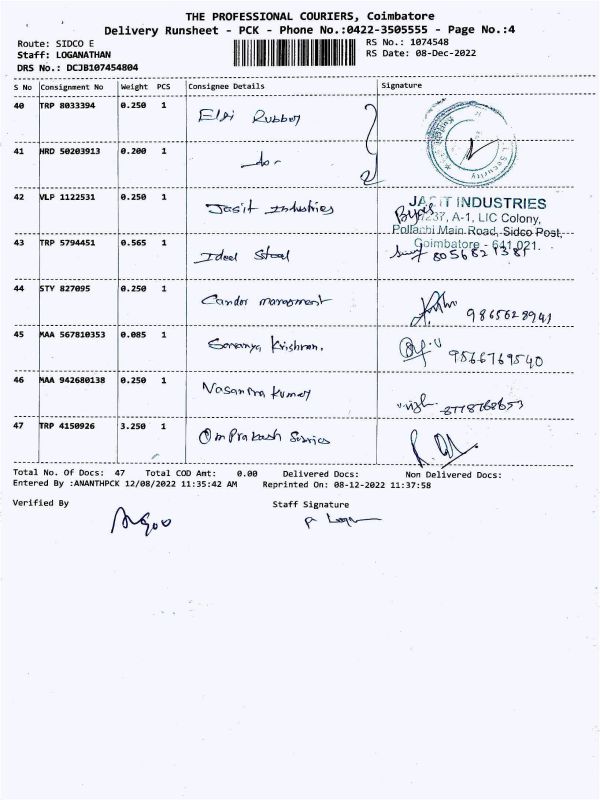 THE PROFESSIONAL COURIERS, Coimbatore
Delivery Runsheet - PCK - Phone No.:0422-3505555 - Page No.:4
Route: SIDCO E RS No.: 1074548
Staff: LOGANATHAN RS Date: 08-Dec-2022
DRS No.: DCJB107454804
S No Consignment No Weight PCS Consignee Details Signature
40 TRP 8033394 0.250 1 Elgi Rubber
41 HRD 50203913 0.200 1 -do-
42 VLP 1122531 0.250 1 Jasit Industries
JASIT INDUSTRIES
237, A-1, LIC Colony,
Pollachi Main Road, Sidco Post,
Coimbatore - 641 021.
43 TRP 5794451 0.565 1 Ideal Steel 8056821381
44 STY 827095 0.250 1 Candor management 9865628941
45 MAA 567810353 0.085 1 Krishnan. 9566769540
46 MAA 942680138 0.250 1 Vasantha Kumar 8778768653
47 TRP 4150926 3.250 1 Om Prakash Services
Total No. Of Docs: 47 Total COD Amt: 0.00 Delivered Docs: Non Delivered Docs:
Entered By :ANANTHPCK 12/08/2022 11:35:42 AM Reprinted On: 08-12-2022 11:37:58
Verified By Staff Signature